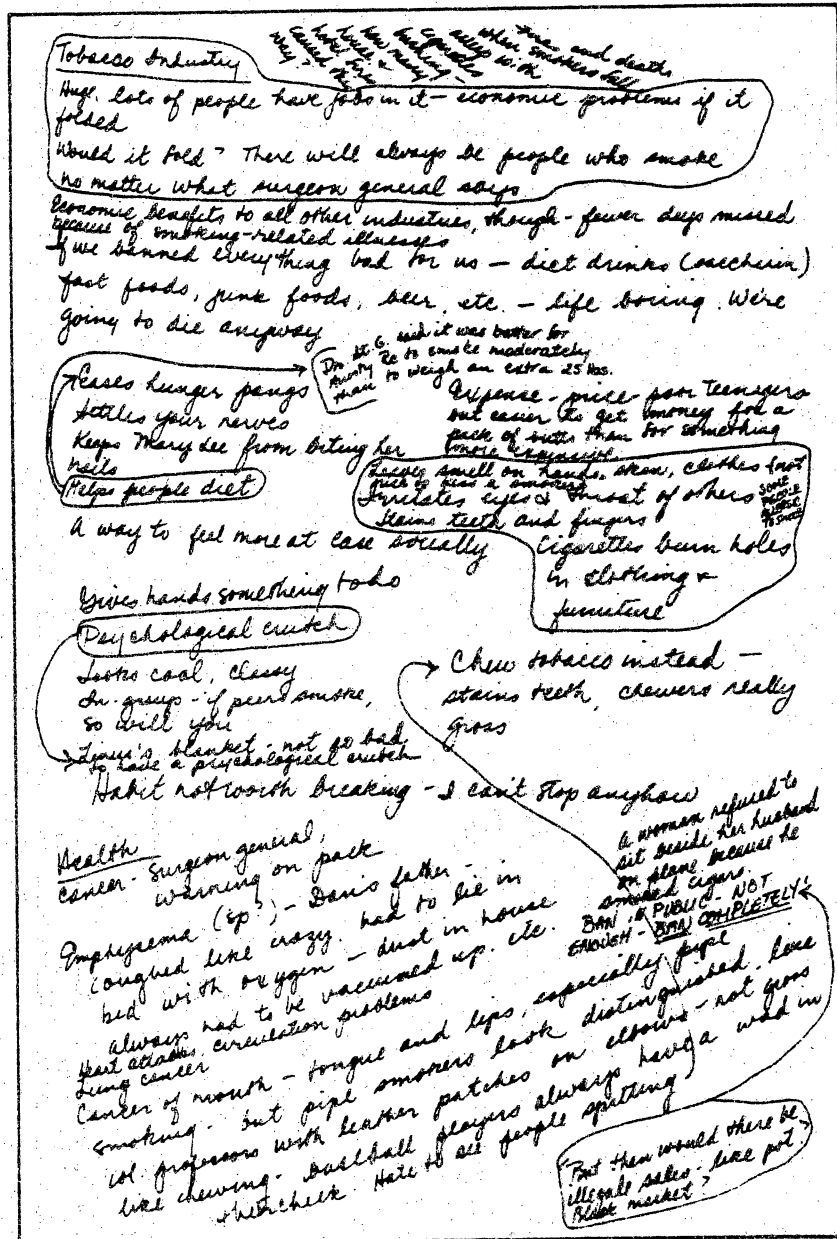 fires and deaths
when smokers fall
asleep with
cigarettes
burning -
how many
house &
hotel fires
caused this
way?
Tobacco Industry
Huge. lots of people have jobs in it - economic problems if it
folded
Would it fold? There will always be people who smoke
no matter what surgeon general says
Economic benefits to all other industries, though - fewer days missed
because of smoking-related illnesses
If we banned everything bad for us - diet drinks (saccharin)
fast foods, junk foods, beer, etc. - life boring. We're
going to die anyway
Dr. St. G. said it was better for
Aunty Re to smoke moderately
than to weigh an extra 25 lbs.
Eases hunger pangs
Settles your nerves
Keeps Mary Lee from biting her
nails
Helps people diet
A way to feel more at ease socially
Expense - price - poor teenagers
but easier to get money for a
pack of butts than for something
more expensive
Leaves smell on hands, skin, clothes (not
nice to kiss a smoker)
Irritates eyes & throat of others
SOME
PEOPLE
ALLERGIC
TO SMOKE
Stains teeth and fingers
Cigarettes burn holes
in clothing &
furniture
Gives hands something to do
Psychological crutch
Looks cool, classy
In-group - if peers smoke,
so will you
Linus's blanket - not so bad
to have a psychological crutch
Chew tobacco instead -
stains teeth, chewers really
gross
Habit not worth breaking - I can't stop anyhow
Health
Cancer - Surgeon general,
warning on pack
Emphysema (sp?) - Dan's father -
coughed like crazy. had to lie in
bed with oxygen - dust in house
always had to be vacuumed up. etc.
Heart attacks, circulation problems
Lung cancer
Cancer of mouth - tongue and lips, especially pipe
smoking. but pipe smokers look distinguished, like
col. professors with leather patches on elbows - not gross
like chewing. Baseball players always have a wad in
their cheek. Hate to see people spitting
A woman refused to
sit beside her husband
on plane because he
smoked cigars.
BAN IN PUBLIC - NOT
ENOUGH - BAN COMPLETELY!
But then would there be
illegal sales - like pot.
Black market?